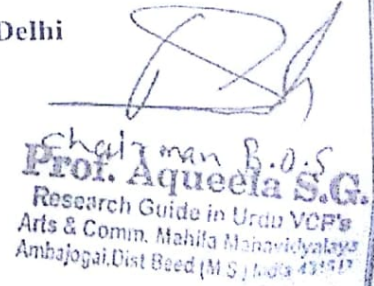 Delhi
Chairman B.O.S
Prof. Aqueela S.G.
Research Guide in Urdu VCP's
Arts & Comm. Mahila Mahavidyalaya
Ambajogai.Dist Beed (M S) India 431517